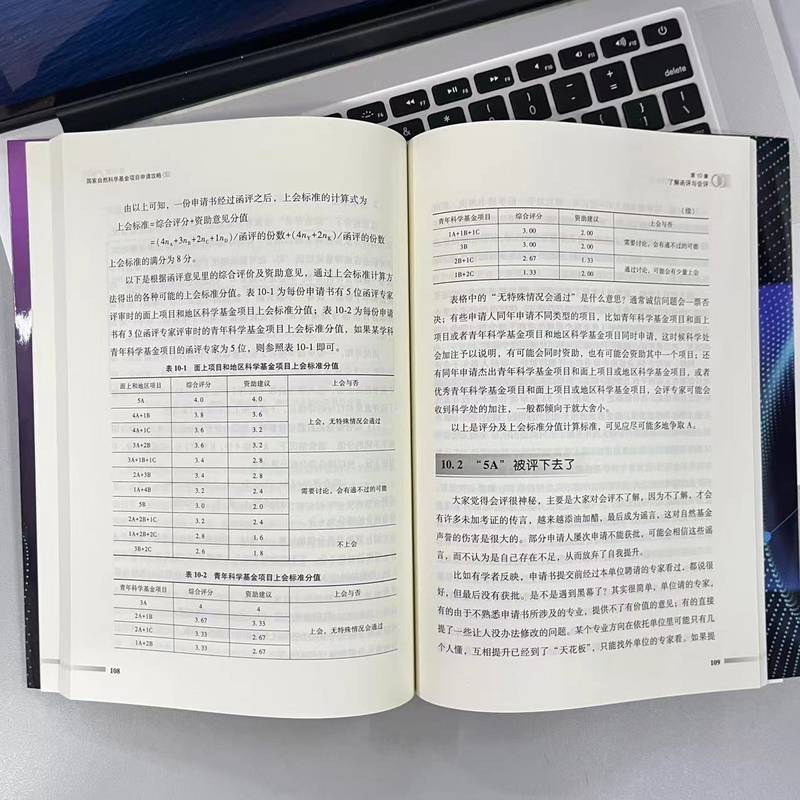 国家自然科学基金项目申请攻略
由以上可知，一份申请书经过函评之后，上会标准的计算式为
上会标准=综合评分+资助意见分值
=(4nA+3nB+2nC+1nD)/函评的份数+(4nY+2nK)/函评的份数
上会标准的满分为8分。
以下是根据函评意见里的综合评价及资助意见，通过上会标准计算方
法得出的各种可能的上会标准分值。表10-1为每份申请书有5位函评专家
评审时的面上项目和地区科学基金项目上会标准分值；表10-2为每份申请
书有3位函评专家评审时的青年科学基金项目上会标准分值，如果某学科
青年科学基金项目的函评专家为5位，则参照表10-1即可。
表10-1 面上项目和地区科学基金项目上会标准分值
面上和地区项目 综合评分 资助建议 上会与否
5A 4.0 4.0
4A+1B 3.8 3.6
4A+1C 3.6 3.2 上会，无特殊情况会通过
3A+2B 3.6 3.2
3A+1B+1C 3.4 2.8
2A+3B 3.4 2.8
1A+4B 3.2 2.4 需要讨论，会有通不过的可能
5B 3.0 2.0
2A+2B+1C 3.2 2.4
1A+2B+2C 2.8 1.6 不上会
3B+2C 2.6 1.8
表10-2 青年科学基金项目上会标准分值
青年科学基金项目 综合评分 资助建议 上会与否
3A 4 4
2A+1B 3.67 3.33
2A+1C 3.33 2.67 上会，无特殊情况会通过
1A+2B 3.33 2.67
108
第10章
了解函评与会评
（续）
青年科学基金项目 综合评分 资助建议 上会与否
1A+1B+1C 3.00 2.00 需要讨论，会有通不过的可能
3B 3.00 2.00
2B+1C 2.67 1.33 通过讨论，可能会有少量上会
1B+2C 1.33 2.00
表格中的“无特殊情况会通过”是什么意思？通常诚信问题会一票否
决；有些申请人同年申请不同类型的项目，比如青年科学基金项目和面上
项目或者青年科学基金项目和地区科学基金项目同时申请，这时候科学处
会加注予以说明，有可能会同时资助，也有可能会资助其中一个项目；还
有同年申请杰出青年科学基金项目和面上项目或地区科学基金项目，或者
优秀青年科学基金项目和面上项目或地区科学基金项目，会评专家可能会
收到科学处的加注，一般都倾向于就大舍小。
以上是评分及上会标准分值计算标准，可见应尽可能多地争取A。
10.2 “5A”被评下去了
大家觉得会评很神秘，主要是大家对会评不了解，因为不了解，才会
有许多未加考证的传言，越来越添油加醋，最后成为谣言，这对自然基金
声誉的伤害是很大的。部分申请人屡次申请不能获批，可能会相信这些谣
言，而不认为是自己存在不足，从而放弃了自我提升。
比如有学者反映，申请书提交前经过本单位聘请的专家看过，都说很
好，但最后没有获批。是不是遇到黑幕了？其实很简单，单位请的专家，
有的由于不熟悉申请书所涉及的专业，提供不了有价值的意见；有的直接
提了一些让人没办法修改的问题。某个专业方向在依托单位里可能只有几
个人懂，互相提升已经到了“天花板”，只能找外单位的专家看。如果提
109
delete
F6
F7
F8
F9
F10
F11
F12